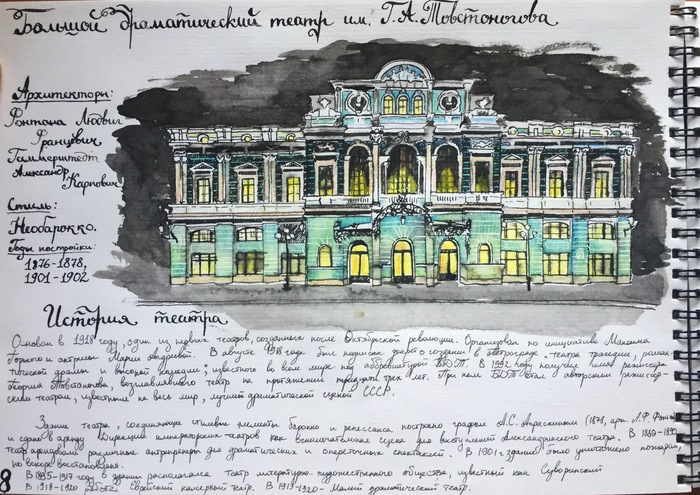 Большой драматический театр им. Г. А. Товстоногова
Архитекторы:
Фонтана Людвиг
Францевич
Гаммерштедт
Александр
Карпович
Стиль:
Необарокко.
Годы постройки:
1876-1878,
1901-1902
История театра
Основан в 1918 году, один из первых театров, созданных после Октябрьской революции. Организован по инициативе Максима
Горького и актрисы Марии Андреевой. В августе 1918 года был подписан декрет о создании в Петрограде "театра трагедии, роман-
тической драмы и высокой комедии", известного во всем мире под аббревиатурой БДТ. В 1992 году получил имя режиссера
Георгия Товстоногова, возглавлявшего театр на протяжении тридцати трех лет. При нем БДТ стал авторским режиссер-
ским театром, известным на весь мир, лучшей драматической сценой СССР.
Здание театра, соединяющее стилевые элементы барокко и ренессанса построено графом А.С. Апраксиным (1878, арх. Л.Ф.
и сдано в аренду Дирекции императорских театров как вспомогательная сцена для выступлений Александринского театра. В
театр арендовали различные антрепренеры для драматических и опереточных спектаклей. В 1901 г здание было уничтожено пожаром,
но вскоре восстановлено.
В 1895-1917 году в здании располагался театр литературно-художественного общества, известный как Суворинский
В 1918-1920 Еврейский камерный театр. В 1919-1920 - Малый драматический театр.
8